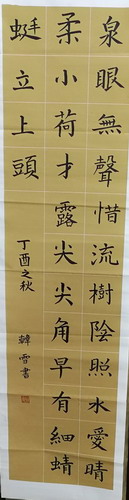 泉眼無聲惜流樹陰照水愛晴
柔小荷才露尖尖角早有細蜻
蜓立上頭
丁酉之秋 韓雪書